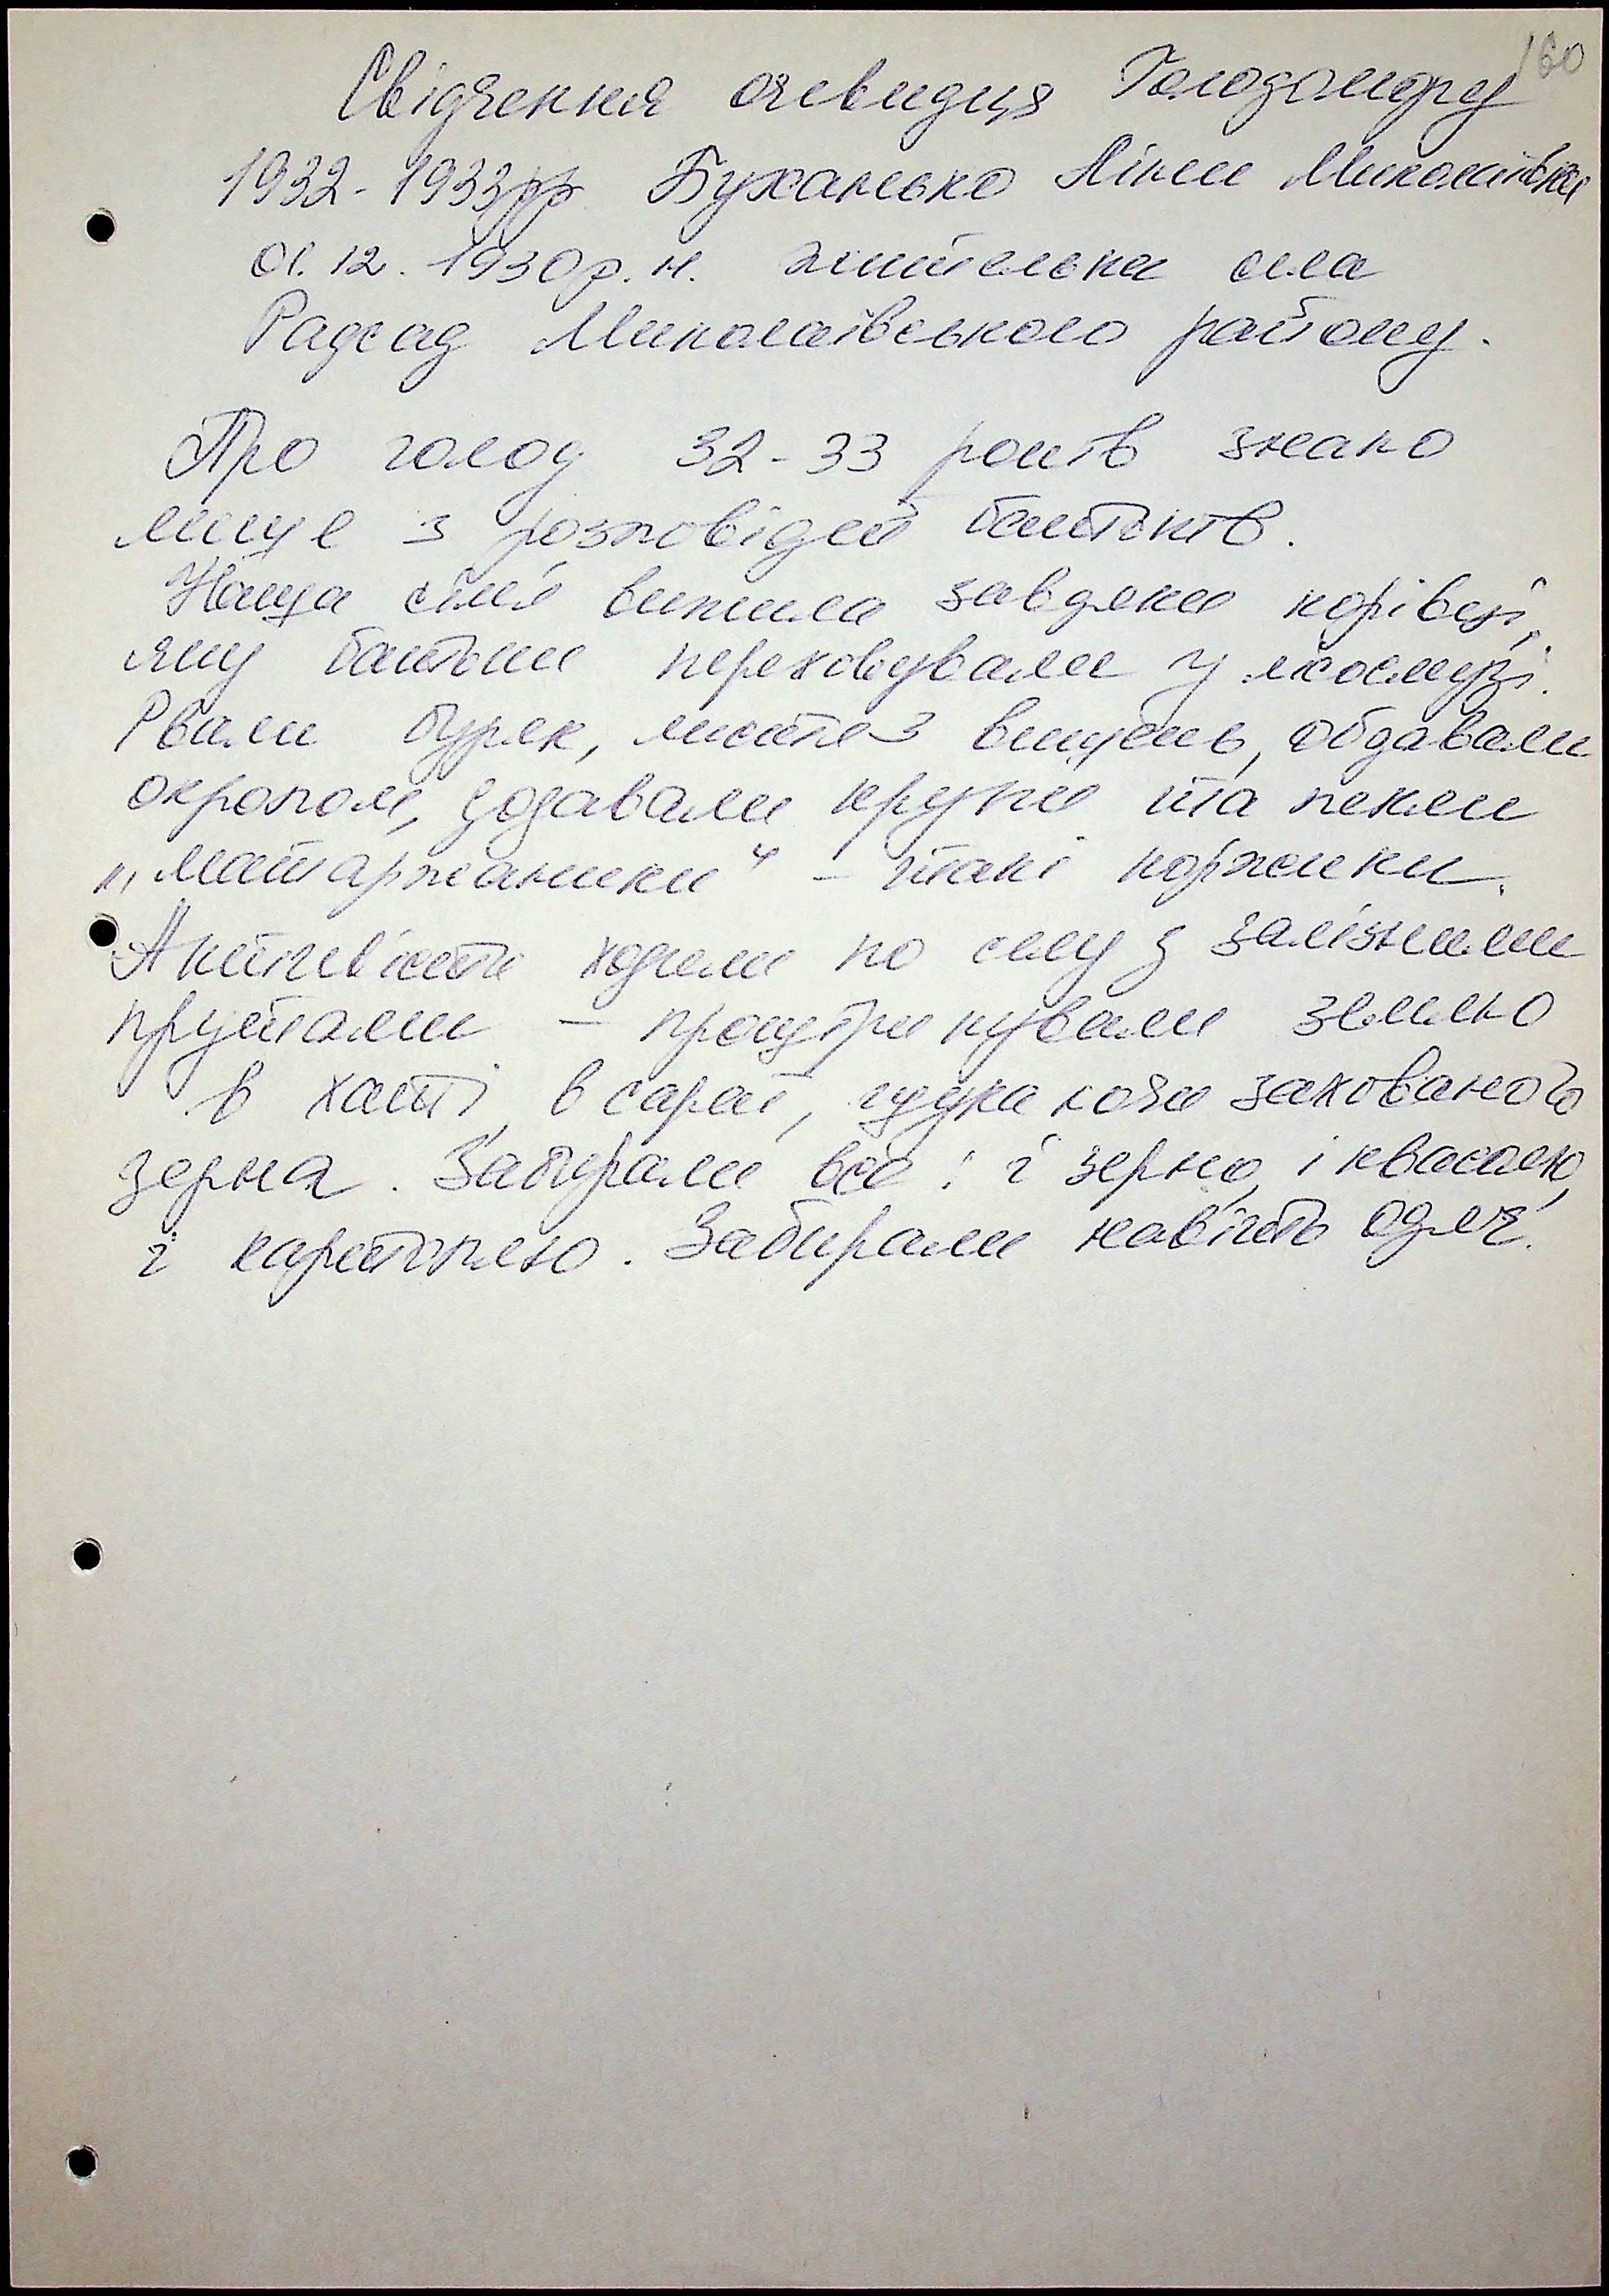 160
Свідчення очевидця Голодомору
1932-1933рр Буханько Ніни Миколаївни
01.12.1930р.н. жителька села
Радсад Миколаївського району.
Про голод 32-33 років знаю
лише з розповідей батьків.
Наша сім'я вижила завдяки корівці,
яку батьки переховували у лісосмузі.
Рвали буряк, листя з вишень, обдавали
окропом, додавали крупи та пекли
„маторжаники" - такі коржики.
Активісти ходили по селу з залізними
прутами - проштрикували землю
в хаті, в сараї, шукаючи захованого
зерна. Забирали все: і зерно, і квасолю,
і картоплю. Забирали навіть одяг.